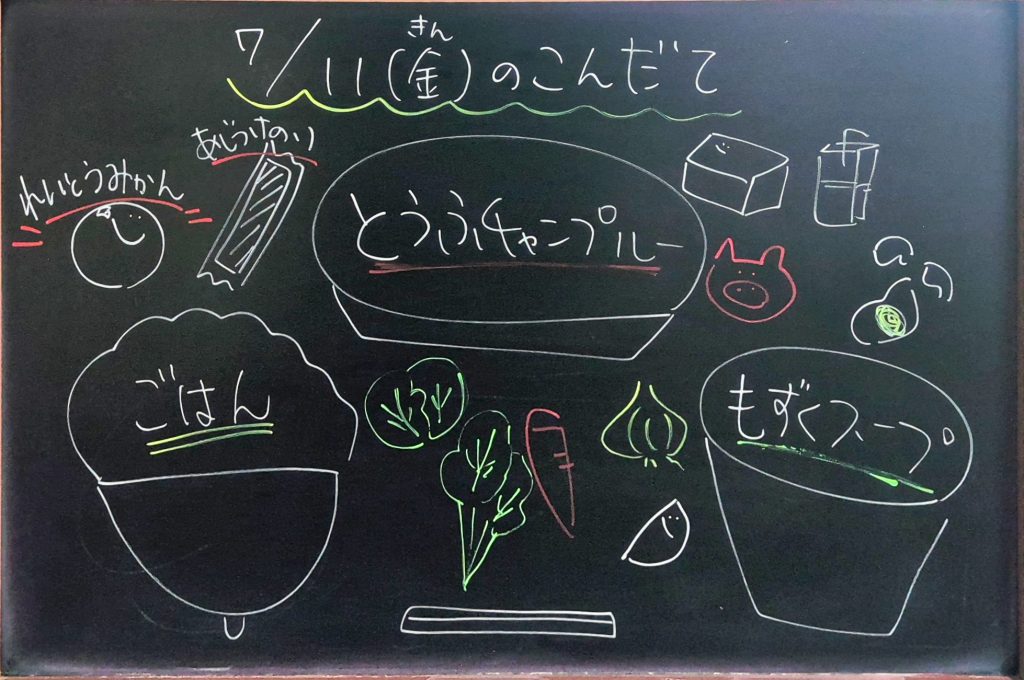 きん
7/11(金)のこんだて
あじつけのり
れいとうみかん
とうふチャンプルー
ごはん
もずくスープ